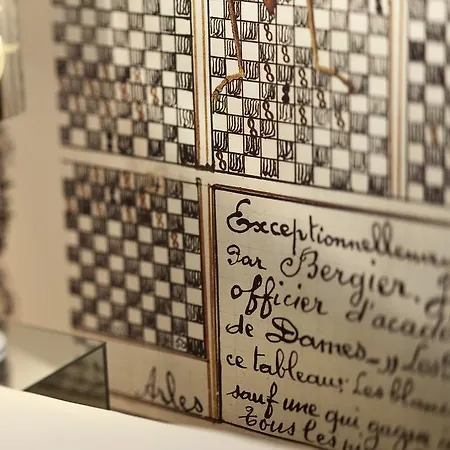 Exceptionnellem
Par Bergier,
officier d'acad
de Dames_,, Les
ce tableau: Les blan
sauf une qui gagne
Tous les
Arles